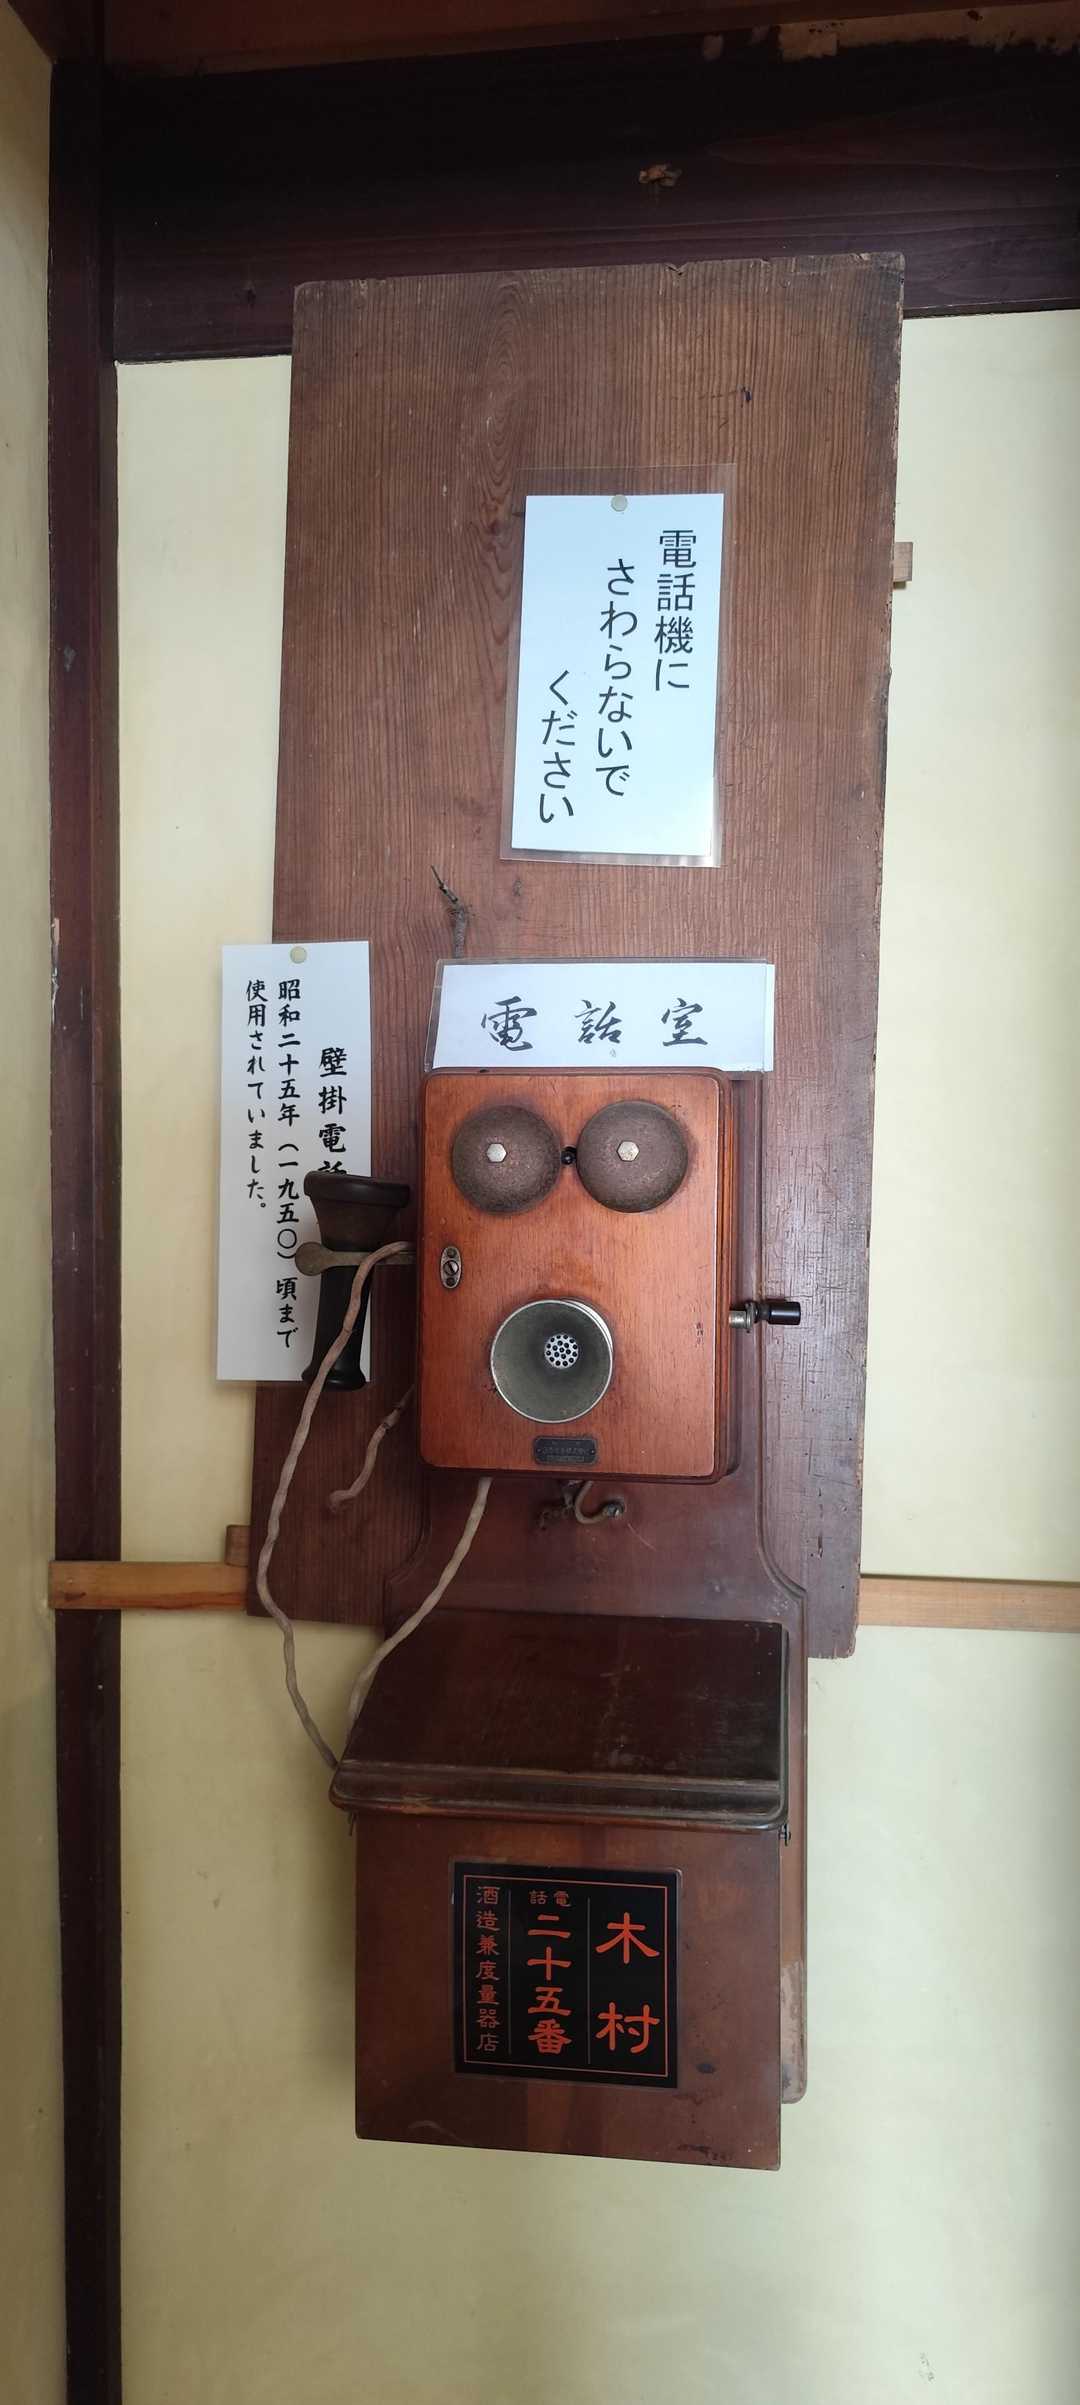 電話機に
さわらないで
ください
電話室
壁掛電話
昭和二十五年（一九五〇）頃まで
使用されていました。
木村
電話
二十五番
酒造兼度量器店